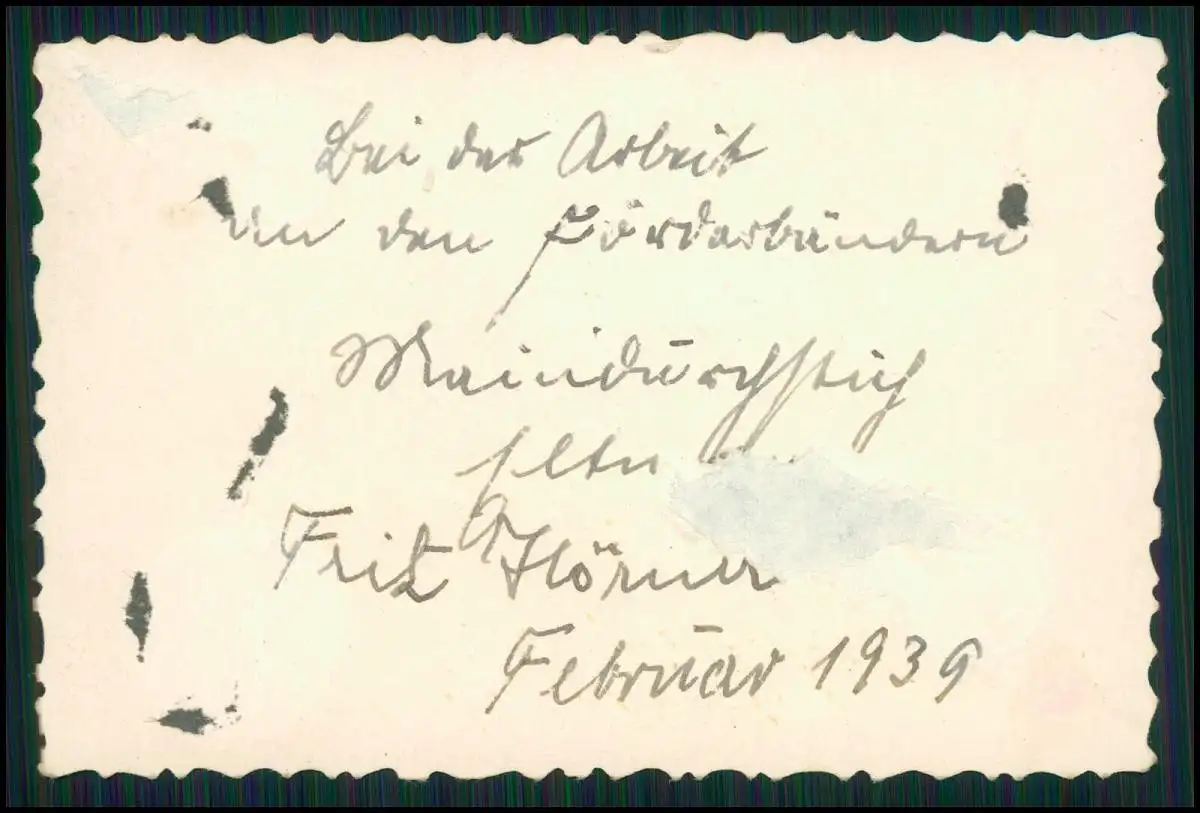 Bei der Arbeit
an den Förderbändern
Maindurchstich
Fritz Hörner
Februar 1939